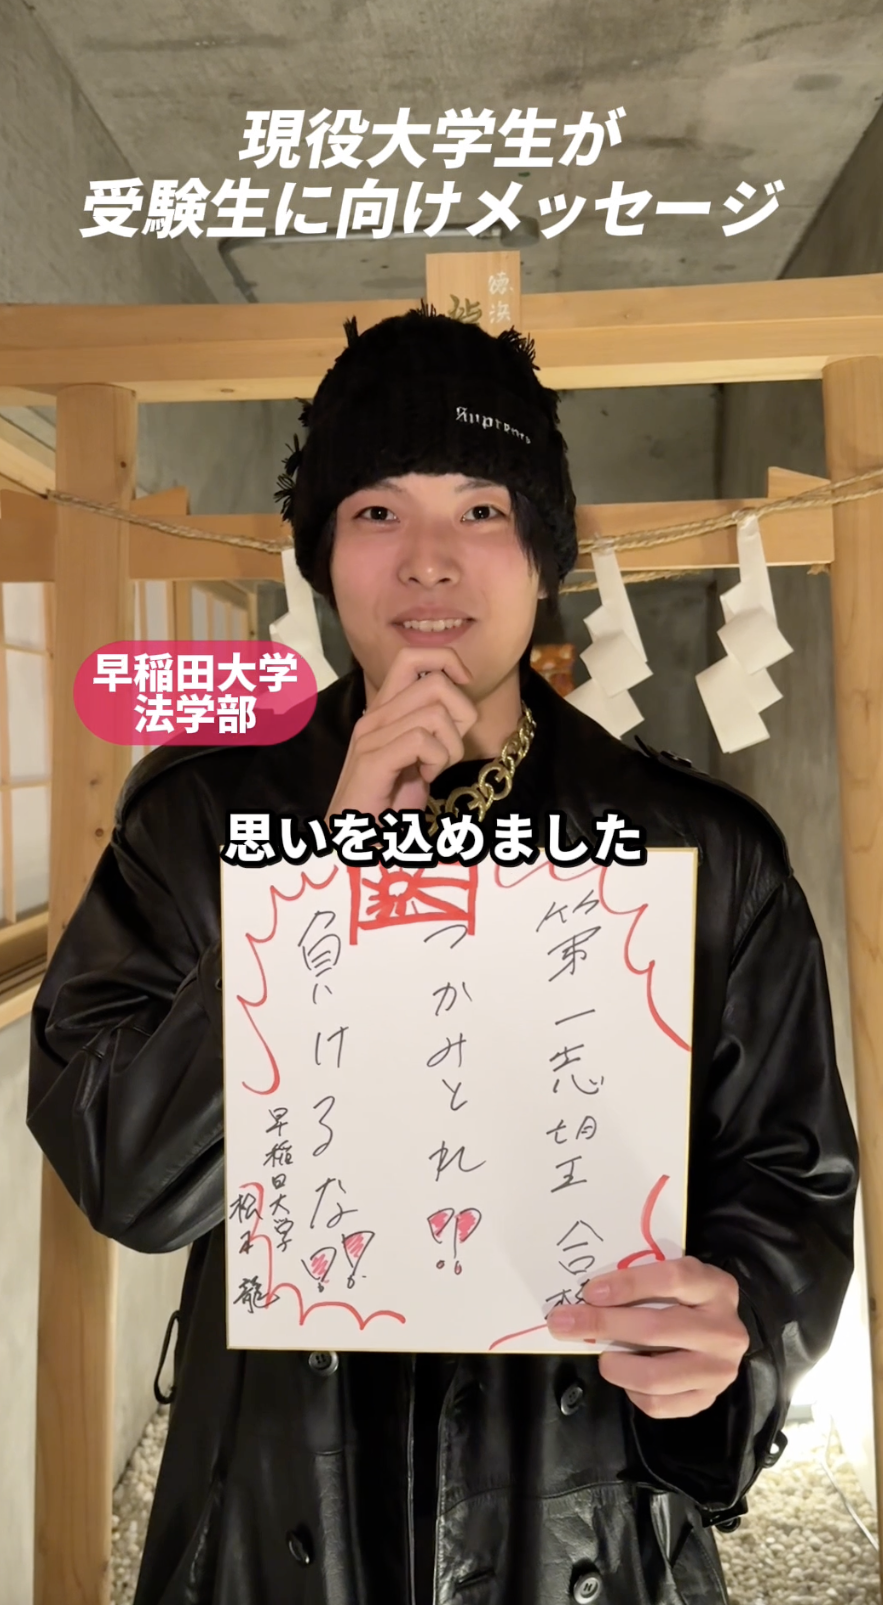 現役大学生が
受験生に向けメッセージ
Supreme
早稲田大学
法学部
思いを込めました
第一志望合格
つかみとれ!!
負けるな!!
早稲田大学
松本 龍